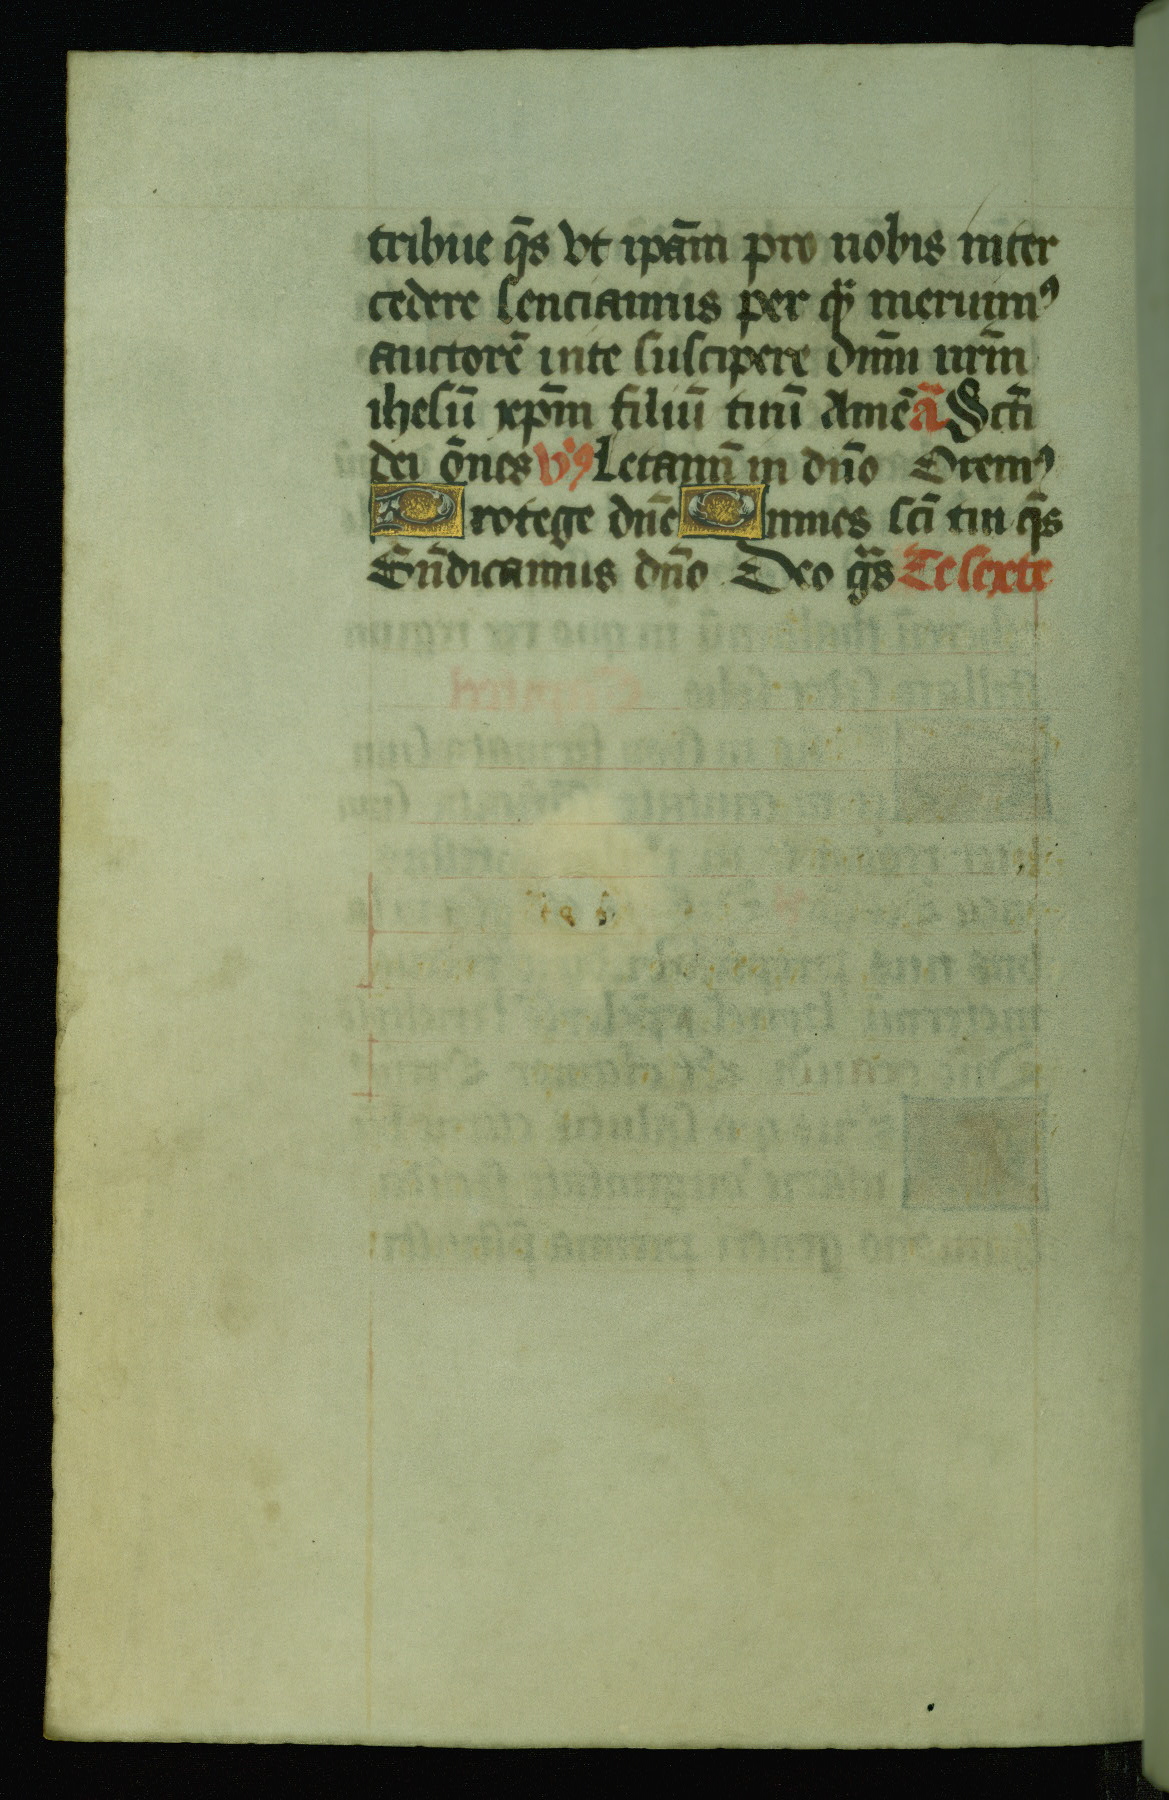 tribue q̄s vt ipām pro nobis inter
cedere senciamus per quā meruimꝰ
auctorē vite suscipere dnm̄ nrm̄
ihesū xp̄m filiū tuū Amē ā Sctī
dei ōnes v̄s Letamī in dn̄o Oremꝰ
Protege dn̄e Omnes scī tui q̄s
Bn̄dicamus dn̄o Deo grās Te sexte